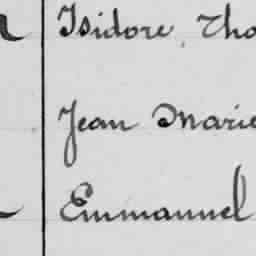 Isidore, Tho
Jean Marie
Emmanuel